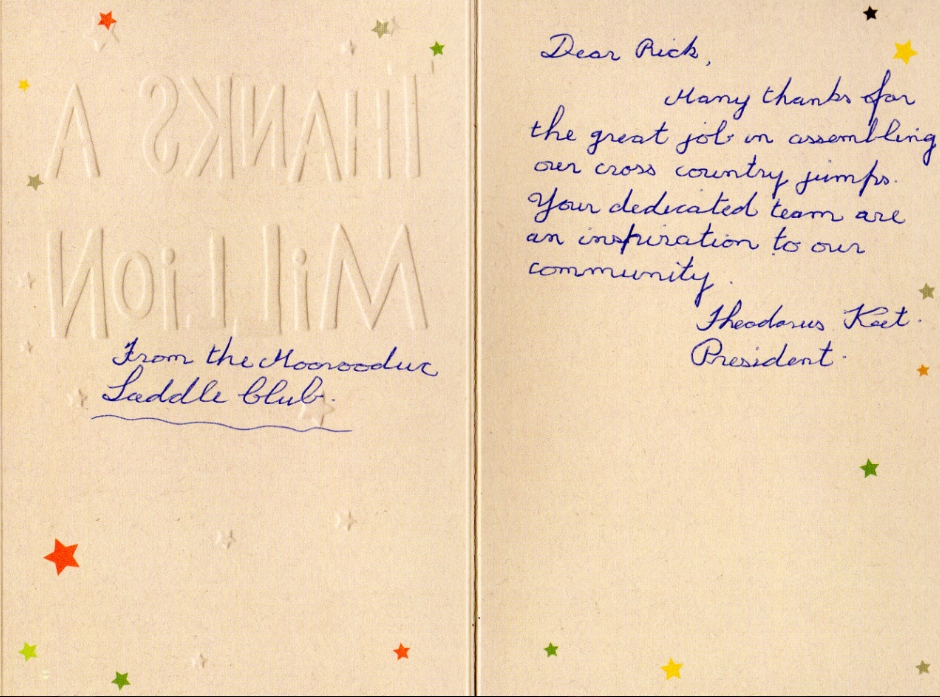 THANKS A
MiLLiON
From the Moorooduc
Saddle Club.
Dear Rick,
Many thanks for
the great job in assembling
our cross country jumps.
Your dedicated team are
an inspiration to our
community.
Theodorus Keet.
President.